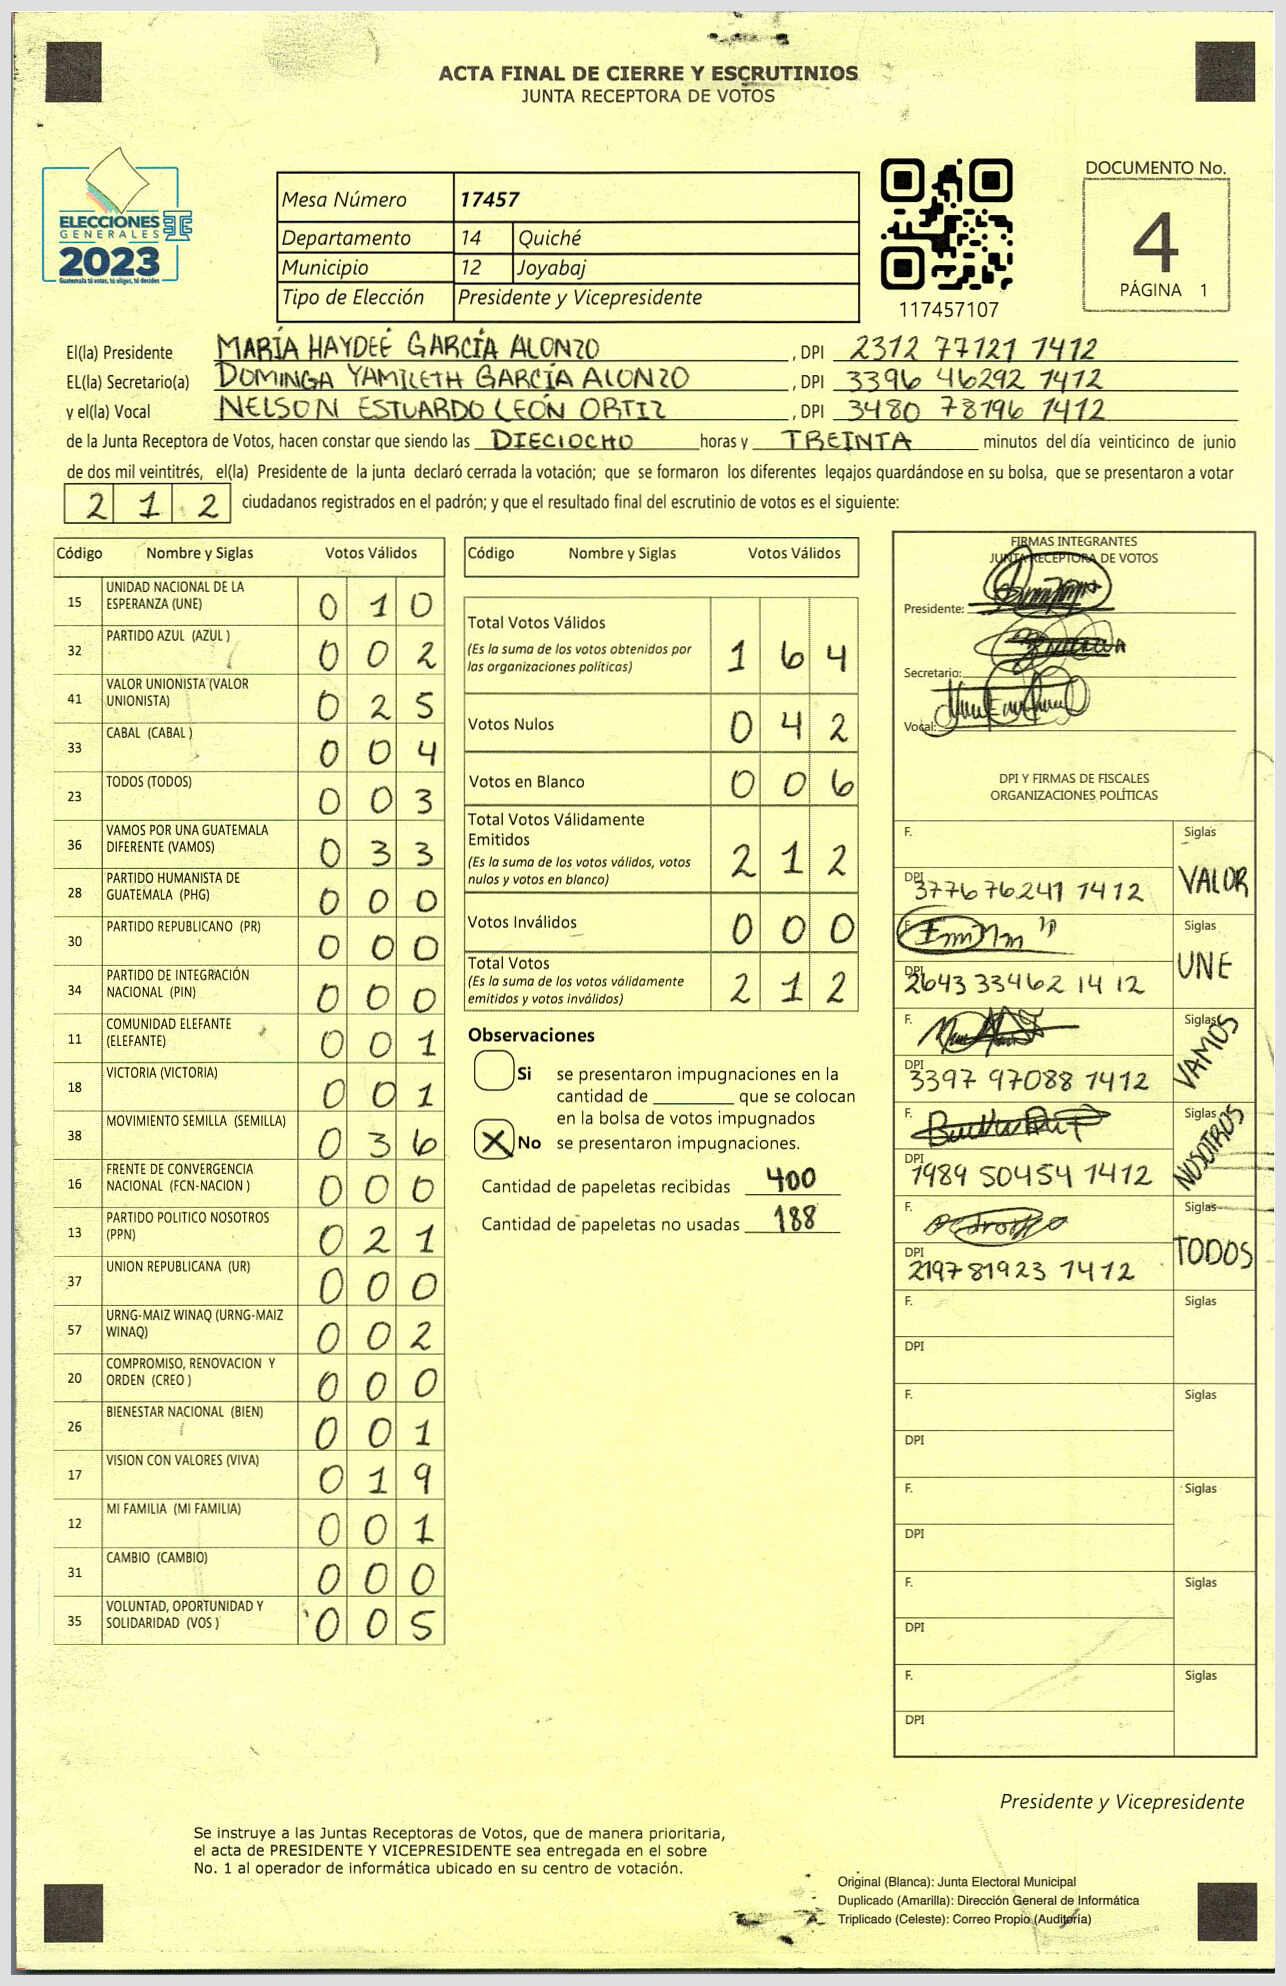 ACTA FINAL DE CIERRE Y ESCRUTINIOS
JUNTA RECEPTORA DE VOTOS
ELECCIONES
GENERALES
2023
Guatemala tú votas, tú eliges, tú decides
Mesa Número 17457
Departamento 14 Quiché
Municipio 12 Joyabaj
Tipo de Elección Presidente y Vicepresidente
117457107
DOCUMENTO No.
4
PÁGINA 1
El(la) Presidente MARÍA HAYDEÉ GARCÍA ALONZO , DPI 2312 77121 1412
EL(la) Secretario(a) DOMINGA YAMILETH GARCÍA ALONZO , DPI 3396 46292 1412
y el(la) Vocal NELSON ESTUARDO LEÓN ORTIZ , DPI 3480 78196 1412
de la Junta Receptora de Votos, hacen constar que siendo las DIECIOCHO horas y TREINTA minutos del día veinticinco de junio
de dos mil veintitrés, el(la) Presidente de la junta declaró cerrada la votación; que se formaron los diferentes legajos guardándose en su bolsa, que se presentaron a votar
2 1 2 ciudadanos registrados en el padrón; y que el resultado final del escrutinio de votos es el siguiente:
Código Nombre y Siglas Votos Válidos
15 UNIDAD NACIONAL DE LA ESPERANZA (UNE) 0 1 0
32 PARTIDO AZUL (AZUL ) 0 0 2
41 VALOR UNIONISTA (VALOR UNIONISTA) 0 2 5
33 CABAL (CABAL ) 0 0 4
23 TODOS (TODOS) 0 0 3
36 VAMOS POR UNA GUATEMALA DIFERENTE (VAMOS) 0 3 3
28 PARTIDO HUMANISTA DE GUATEMALA (PHG) 0 0 0
30 PARTIDO REPUBLICANO (PR) 0 0 0
34 PARTIDO DE INTEGRACIÓN NACIONAL (PIN) 0 0 0
11 COMUNIDAD ELEFANTE (ELEFANTE) 0 0 1
18 VICTORIA (VICTORIA) 0 0 1
38 MOVIMIENTO SEMILLA (SEMILLA) 0 3 6
16 FRENTE DE CONVERGENCIA NACIONAL (FCN-NACION ) 0 0 0
13 PARTIDO POLITICO NOSOTROS (PPN) 0 2 1
37 UNION REPUBLICANA (UR) 0 0 0
57 URNG-MAIZ WINAQ (URNG-MAIZ WINAQ) 0 0 2
20 COMPROMISO, RENOVACION Y ORDEN (CREO ) 0 0 0
26 BIENESTAR NACIONAL (BIEN) 0 0 1
17 VISION CON VALORES (VIVA) 0 1 9
12 MI FAMILIA (MI FAMILIA) 0 0 1
31 CAMBIO (CAMBIO) 0 0 0
35 VOLUNTAD, OPORTUNIDAD Y SOLIDARIDAD (VOS ) 0 0 5
Código Nombre y Siglas Votos Válidos
Total Votos Válidos
(Es la suma de los votos obtenidos por
las organizaciones políticas) 1 6 4
Votos Nulos 0 4 2
Votos en Blanco 0 0 6
Total Votos Válidamente
Emitidos
(Es la suma de los votos válidos, votos
nulos y votos en blanco) 2 1 2
Votos Inválidos 0 0 0
Total Votos
(Es la suma de los votos válidamente
emitidos y votos inválidos) 2 1 2
Observaciones
Si se presentaron impugnaciones en la
cantidad de ________ que se colocan
en la bolsa de votos impugnados
X No se presentaron impugnaciones.
Cantidad de papeletas recibidas 400
Cantidad de papeletas no usadas 188
FIRMAS INTEGRANTES
JUNTA RECEPTORA DE VOTOS
Presidente:
Secretario:
Vocal:
DPI Y FIRMAS DE FISCALES
ORGANIZACIONES POLÍTICAS
F. Siglas
DPI 3776 76241 1412 VALOR
F. Siglas
DPI 2643 33462 1412 UNE
F. Siglas
DPI 3397 97088 1412 VAMOS
F. Siglas
DPI 1989 50454 1412 NOSOTROS
F. Siglas
DPI 2197 81923 1412 TODOS
F. Siglas
DPI
F. Siglas
DPI
F. Siglas
DPI
F. Siglas
DPI
F. Siglas
DPI
Presidente y Vicepresidente
Se instruye a las Juntas Receptoras de Votos, que de manera prioritaria,
el acta de PRESIDENTE Y VICEPRESIDENTE sea entregada en el sobre
No. 1 al operador de informática ubicado en su centro de votación.
Original (Blanca): Junta Electoral Municipal
Duplicado (Amarilla): Dirección General de Informática
Triplicado (Celeste): Correo Propio (Auditoría)